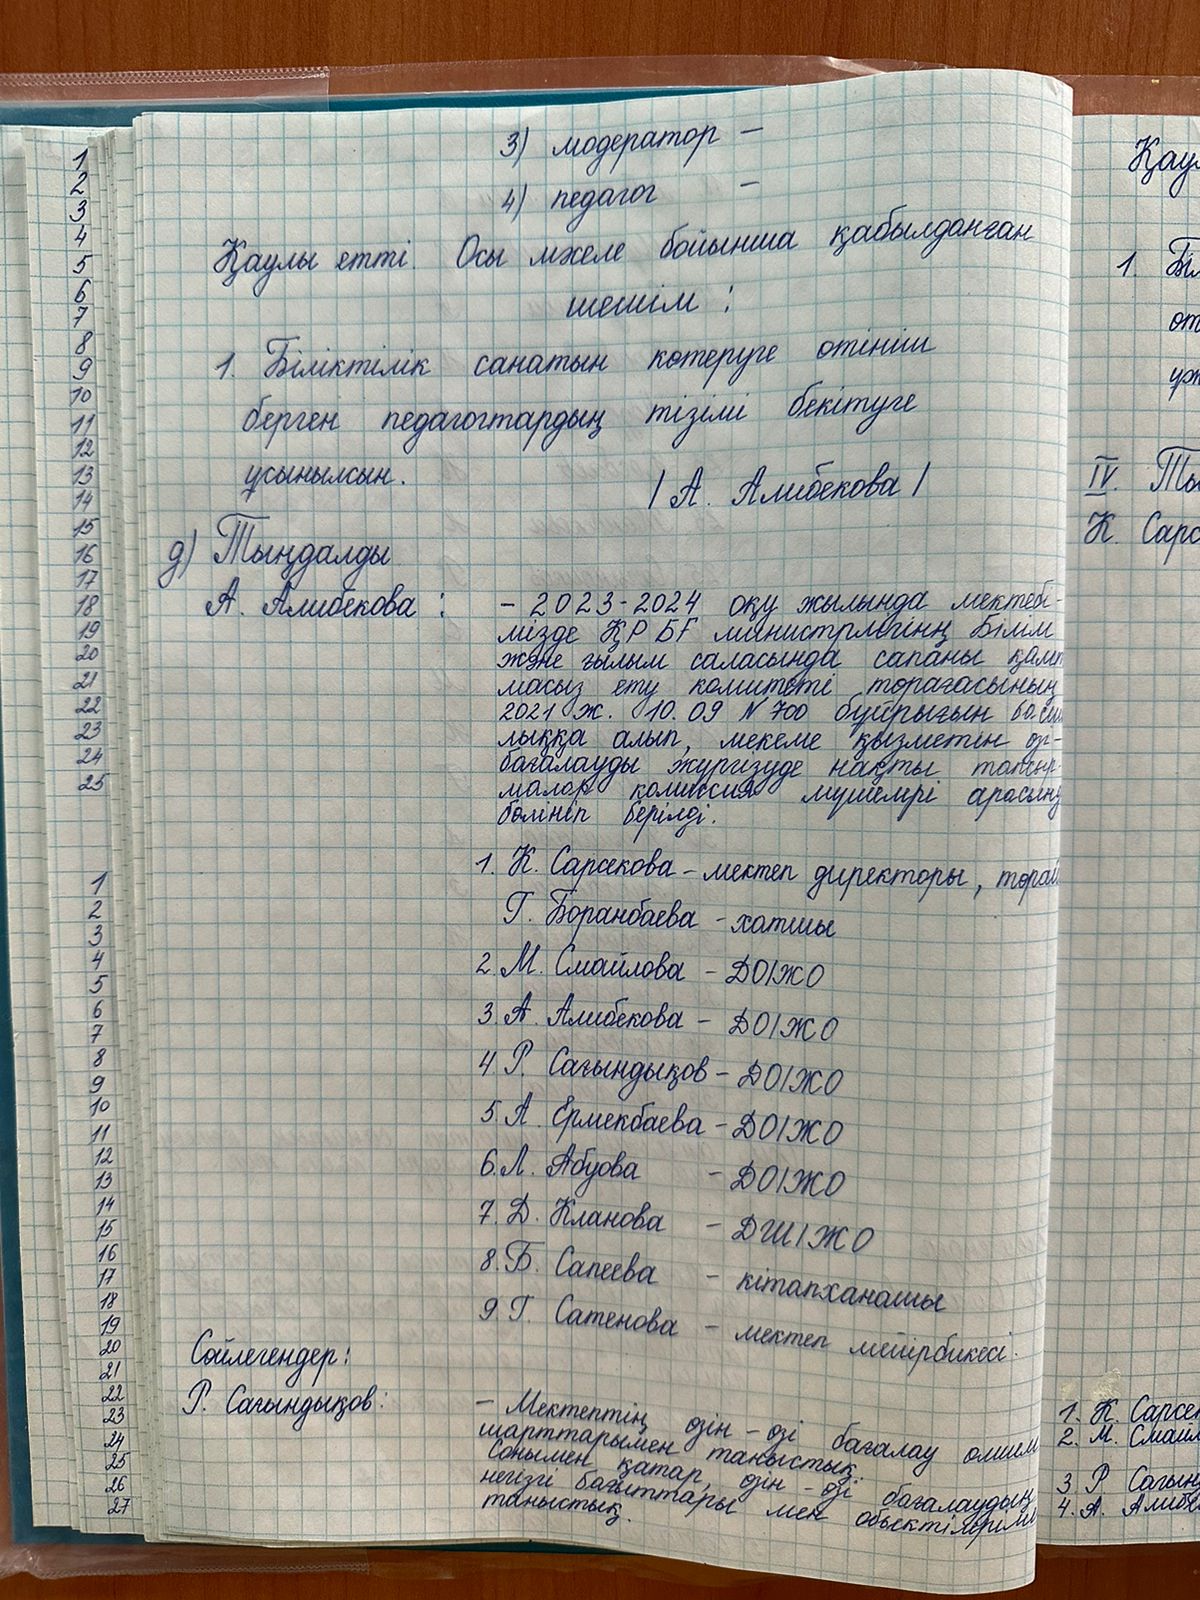 3) модератор –
4) педагог –
Қаулы етті. Осы мәселе бойынша қабылданған
шешім :
1. Біліктілік санатын көтеруге өтініш
берген педагогтардың тізімі бекітуге
ұсынылсын.
/ А. Алибекова /
д) Тыңдалды
А. Алибекова : – 2023-2024 оқу жылында мектебі-
мізде ҚР БҒ министрлігінң Білім
және ғылым саласында сапаны қамт
масыз ету комитеті төрағасының
2021 ж. 10.09 №700 бұйрығын басшы
лыққа алып, мекеме қызметін өз-
бағалауды жүргізуде нақты тапсыр
малар комиссия мүшелері арасынд
бөлініп берілді.
1. К. Сарсекова – мектеп директоры, төрай
Г. Боранбаева – хатшы
2. М. Смайлова – ДОІЖО
3. А. Алибекова – ДОІЖО
4 Р. Сағындықов – ДОІЖО
5. А. Ермекбаева – ДОІЖО
6. Л. Абуова – ДОІЖО
7. Д. Кланова – ДШІЖО
8. Б. Сапеева – кітапханашы
9 Г. Сатенова – мектеп мейірбикесі.
Сөйлегендер:
Р. Сағындықов: – Мектептің өзін-өзі бағалау өлшем
шарттарымен таныстық.
Сонымен қатар, өзін-өзі бағалаудың
негізгі бағыттары мен объектілерімен
таныстық.
1
2
3
4
5
6
7
8
9
10
11
12
13
14
15
16
17
18
19
20
21
22
23
24
25
1
2
3
4
5
6
7
8
9
10
11
12
13
14
15
16
17
18
19
20
21
22
23
24
25
26
27
Қаул
1. Біл
өт
ұж
IV. Ты
К. Сарс
1. К. Сарсек
2. М. Смайл
3 Р Сағынд
4. А. Алибе